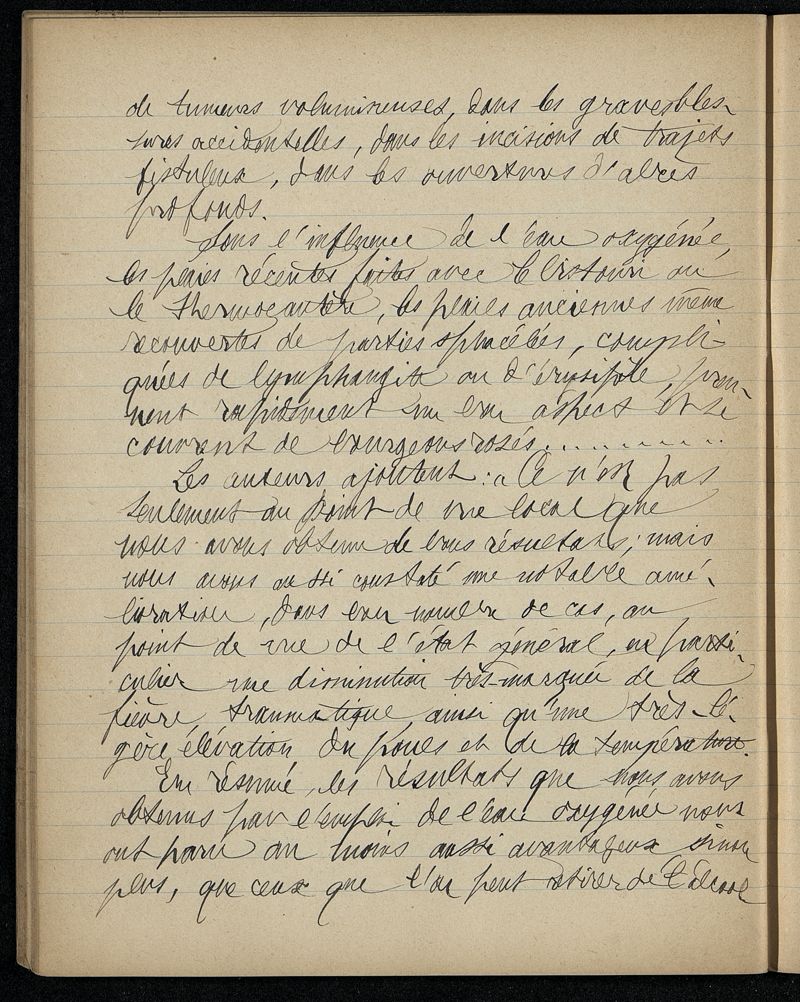 de tumeurs volumineuses, dans les graves bles-
sures accidentelles, dans les incisions de trajets
fistuleux, dans les ouvertures d'abcès
profonds.
Sous l'influence de l'eau oxygénée,
les plaies récentes faites avec le bistouri ou
le thermocautère, les plaies anciennes même
recouvertes de parties sphacélées, compli-
quées de lymphangite ou d'érysipèle, pren-
nent rapidement un bon aspect et se
couvrent de bourgeons rosés..........
Les auteurs ajoutent : « Ce n'est pas
seulement au point de vue local que
nous avons obtenu de bons résultats ; mais
nous avons aussi constaté une notable amé-
lioration, dans bon nombre de cas, au
point de vue de l'état général, en parti-
culier une diminution très-marquée de la
fièvre traumatique ainsi qu'une très-lé-
gère élévation du pouls et de la température.
En résumé, les résultats que nous avons
obtenus par l'emploi de l'eau oxygénée nous
ont paru au moins aussi avantageux sinon
plus, que ceux que l'on peut retirer de l'alcool